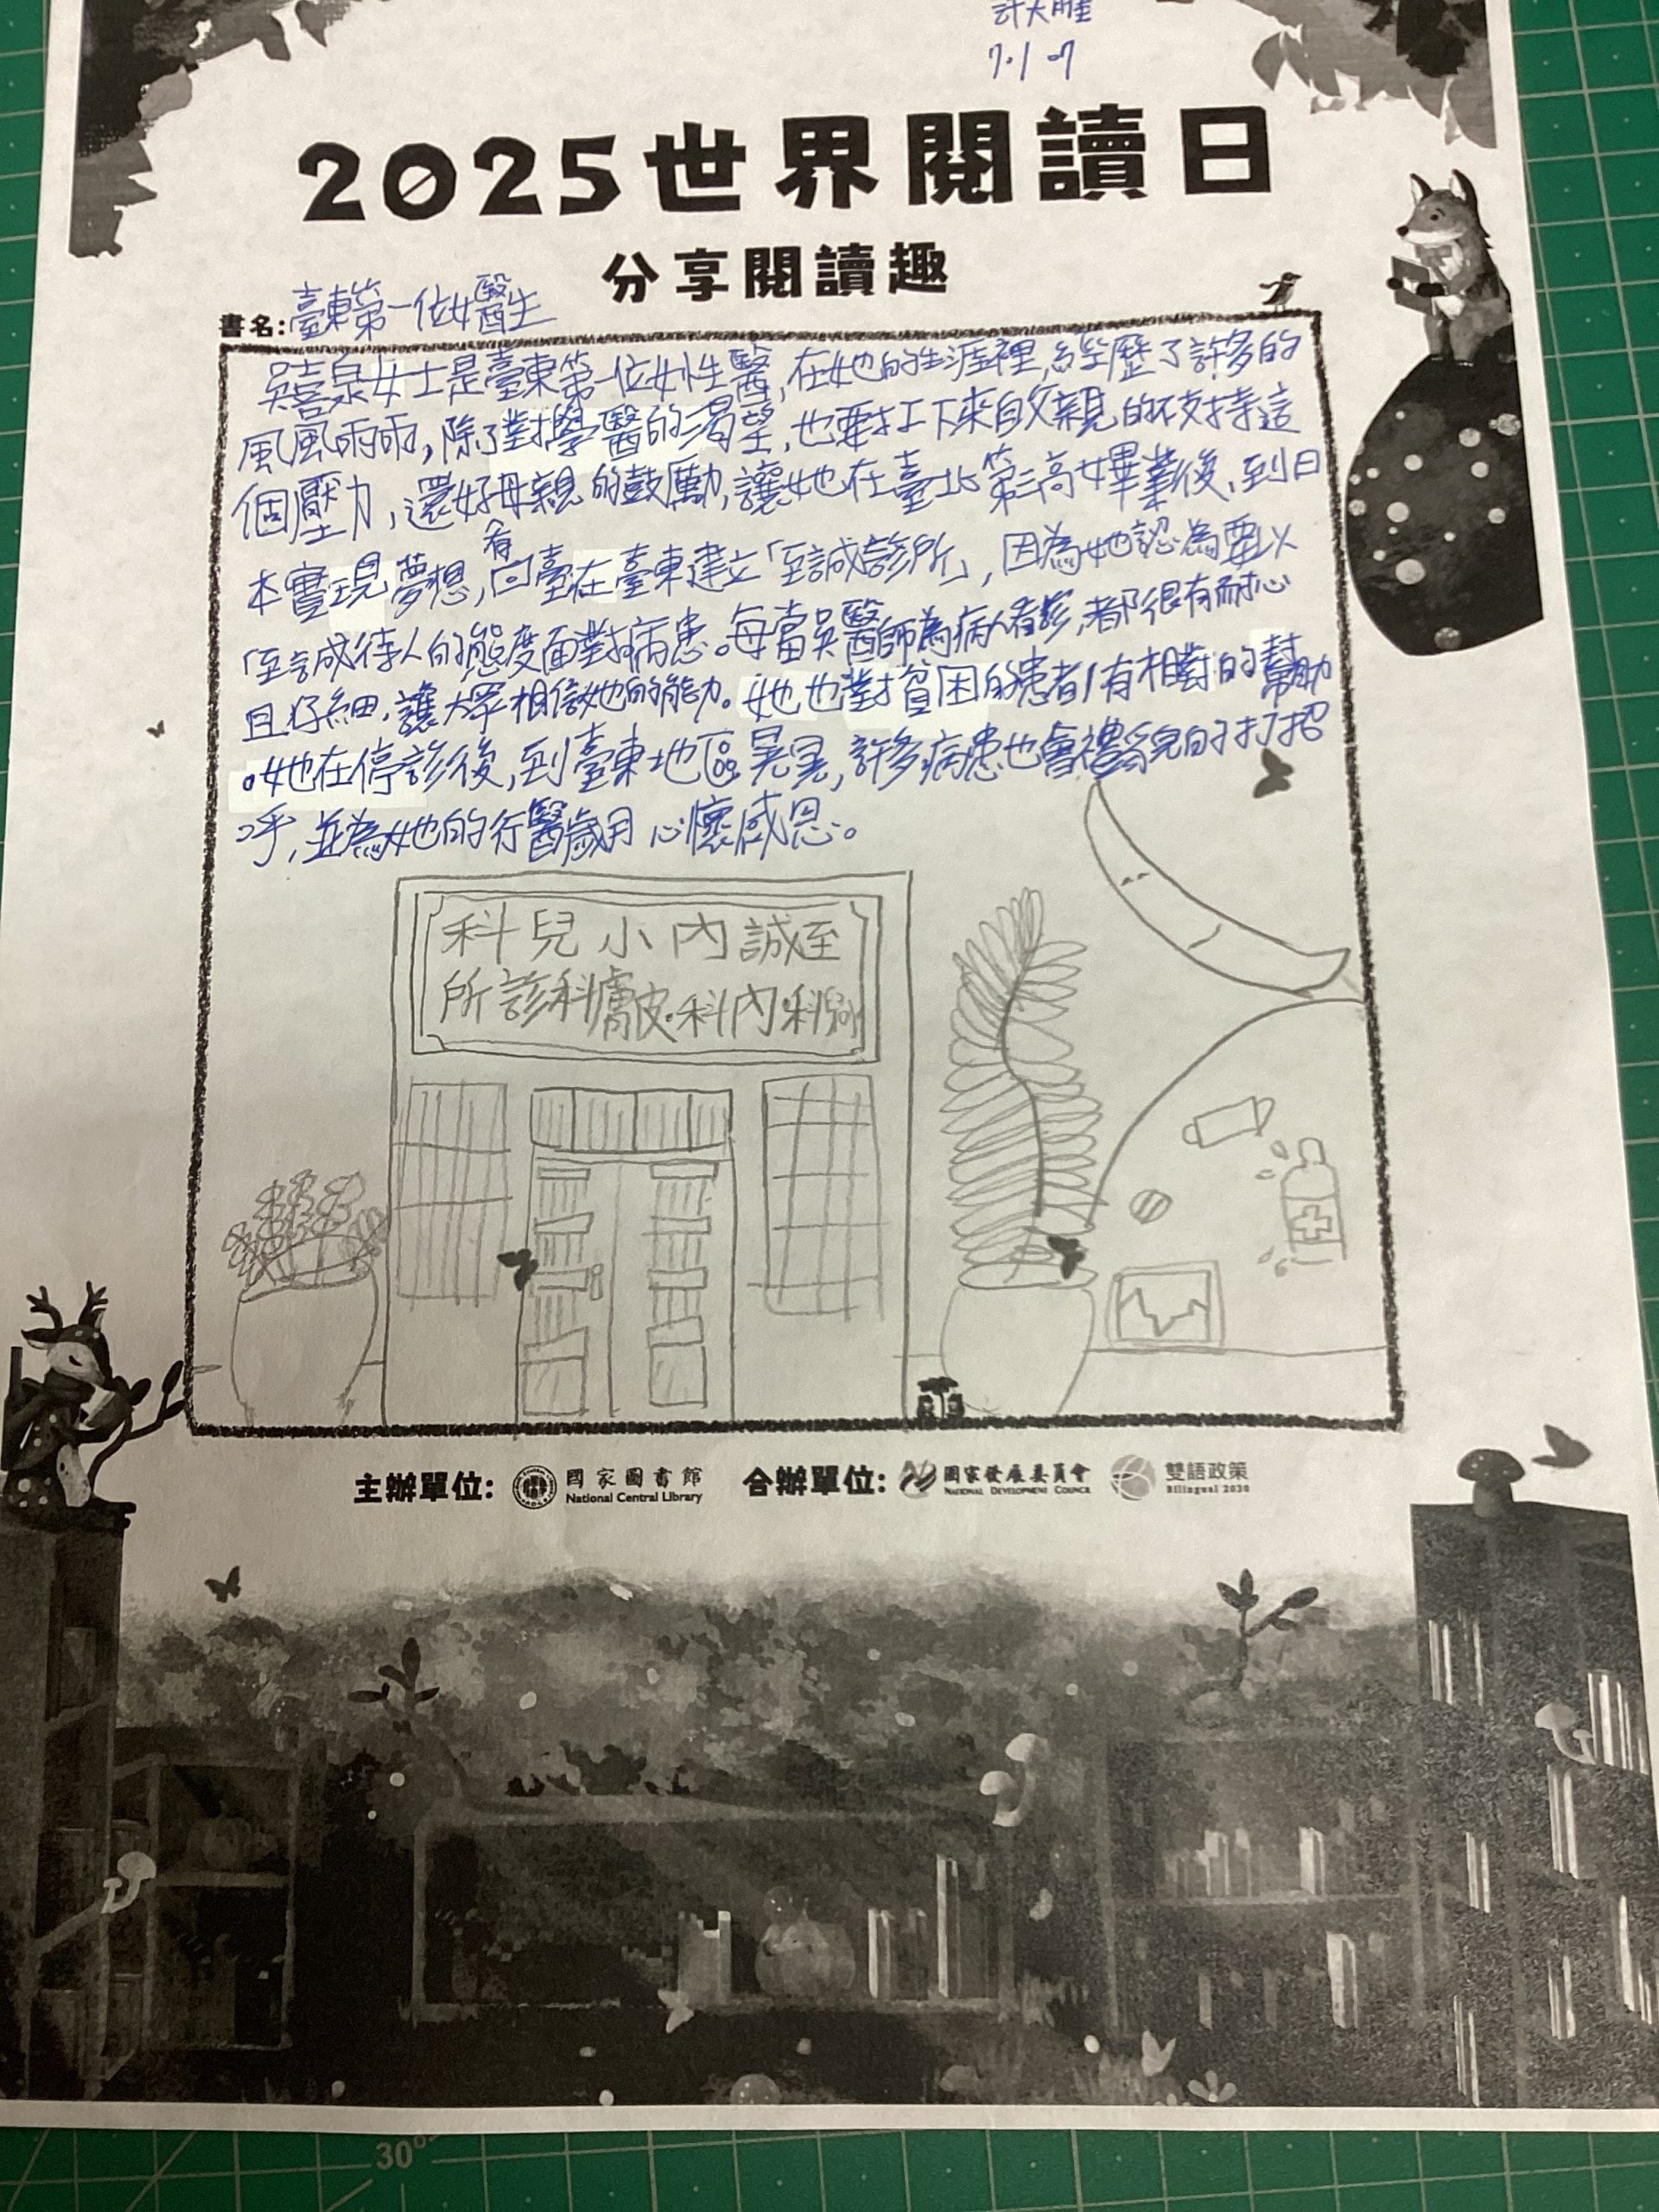 7.1 27
2025世界閱讀日
分享閱讀趣
書名:臺東第一位女醫生
吳喜泉女士是臺東第一位女性醫,在她的生涯裡,經歷了許多的
風風雨雨,除了對學醫的渴望,也要扛下來自父親的不支持這
個壓力,還好母親的鼓勵,讓她在臺北第三高女畢業後,到日
看
本實現夢想,回臺在臺東建立「至誠診所」,因為她認為要以
「至誠待人的態度面對病患。每當吳醫師為病人看診,都很有耐心
且仔細,讓大眾相信她的能力。她也對貧困的患者有相對的幫助
。她在停診後,到臺東地區晃晃,許多病患也會禮貌的打招
呼,並為她的行醫歲月心懷感恩。
科兒小內誠至
所診科膚皮·科內·科兒小
主辦單位: 國家圖書館 National Central Library 合辦單位: 國家發展委員會 NATIONAL DEVELOPMENT COUNCIL 雙語政策 Bilingual 2030
30°